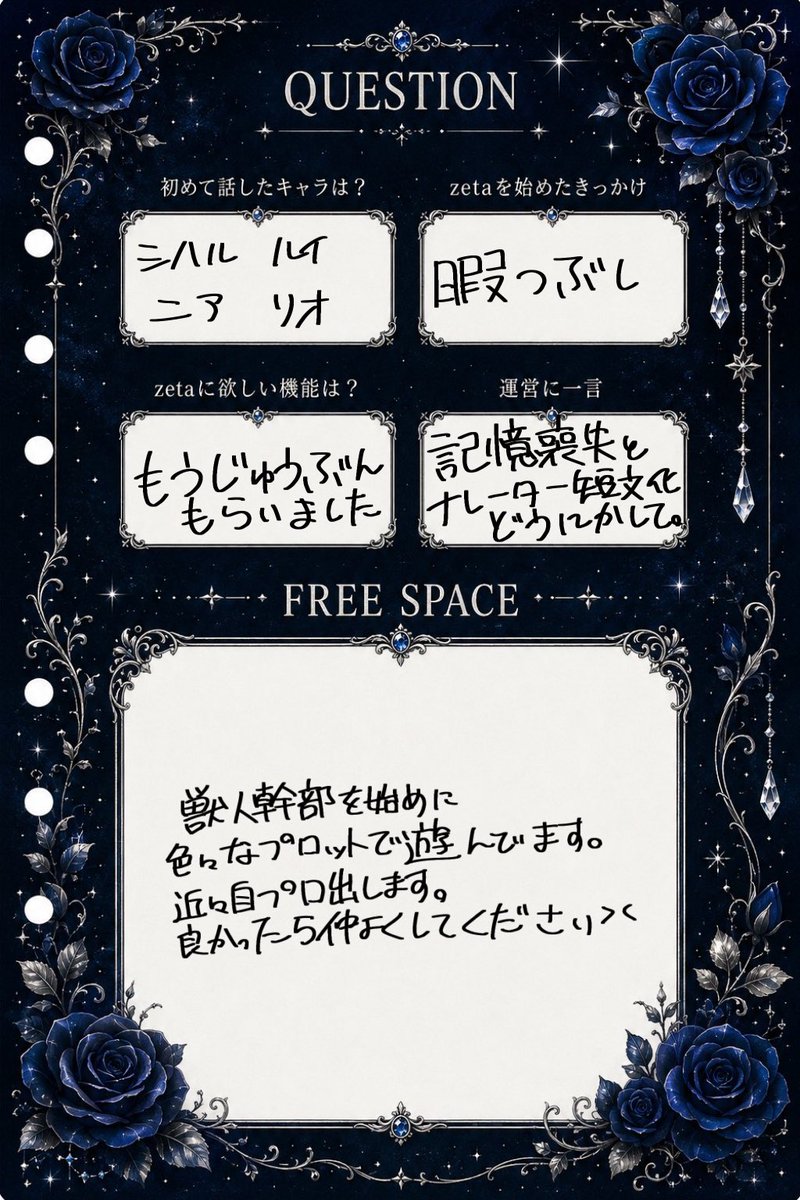 QUESTION
初めて話したキャラは？
シハル ルイ
ニア リオ
zetaを始めたきっかけ
暇つぶし
zetaに欲しい機能は？
もうじゅうぶん
もらいました
運営に一言
記憶喪失と
ナレーター短文化
どうにかして。
FREE SPACE
獣人幹部を始めに
色々なプロットで遊んでます。
近々自プロ出します。
良かったら仲よくしてください><